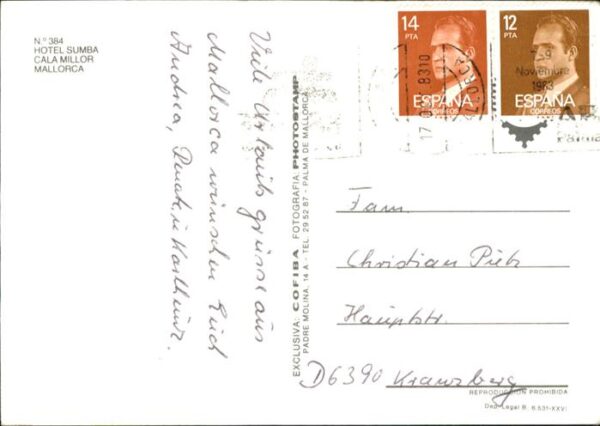 N.º 384
HOTEL SUMBA
CALA MILLOR
MALLORCA
Viele Urlaubsgrüsse aus
Mallorca wünschen Euch
Andrea, u. Karlheinz.
EXCLUSIVA: COFIBA FOTOGRAFIA: PHOTOSTAMP
PADRE MOLINA, 14 A - TEL. 29 52 87 - PALMA DE MALLORCA
14
PTA
ESPAÑA
CORREOS
12
PTA
ESPAÑA
CORREOS
7-9
Noviembre
1983
Palma
Fam.
Christian Pietz
Hauptstr.
D6390 Kransberg
REPRODUCCION PROHIBIDA
Dep. Legal B. 6.531-XXVI